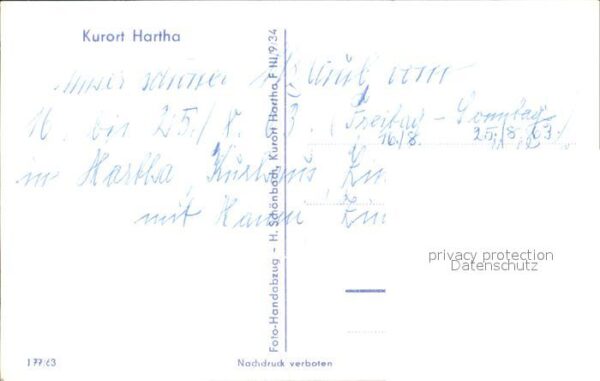 Kurort Hartha
unser schöner Urlaub vom
16. bis 25./8. 63. (Freitag - Sonntag
16./8. 25./8. 63.)
in Hartha, Kurhaus,
mit
Foto-Handabzug - H. Schönbach, Kurort Hartha, F III/9/34
privacy protection
Datenschutz
J 77/63
Nachdruck verboten